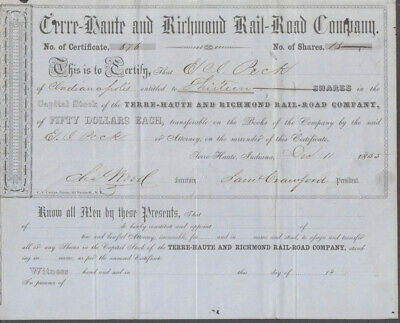 Terre-Haute and Richmond Rail-Road Company.
No. of Certificate, 876 No. of Shares, 13
This is to Certify, That E J Peck
of Indianapolis entitled to Thirteen SHARES in the
Capital Stock of the TERRE-HAUTE AND RICHMOND RAIL-ROAD COMPANY,
of FIFTY DOLLARS EACH, transferable on the Books of the Company by the said
E. J. Peck or Attorney, on the surrender of this Certificate.
Terre-Haute, Indiana, 1853
Wood Secretary. Saml Crawford President.
Know all Men by these Presents, That
of do hereby constitute and appoint
of true and lawful Attorney, irrevocable, for and in name and stead, to assign and transfer
all or any Shares in the Capital Stock of the TERRE-HAUTE AND RICHMOND RAIL-ROAD COMPANY, stand
ing in name, as per the annexed Certificate.
Witness hand and seal in this day of 18
In presence of